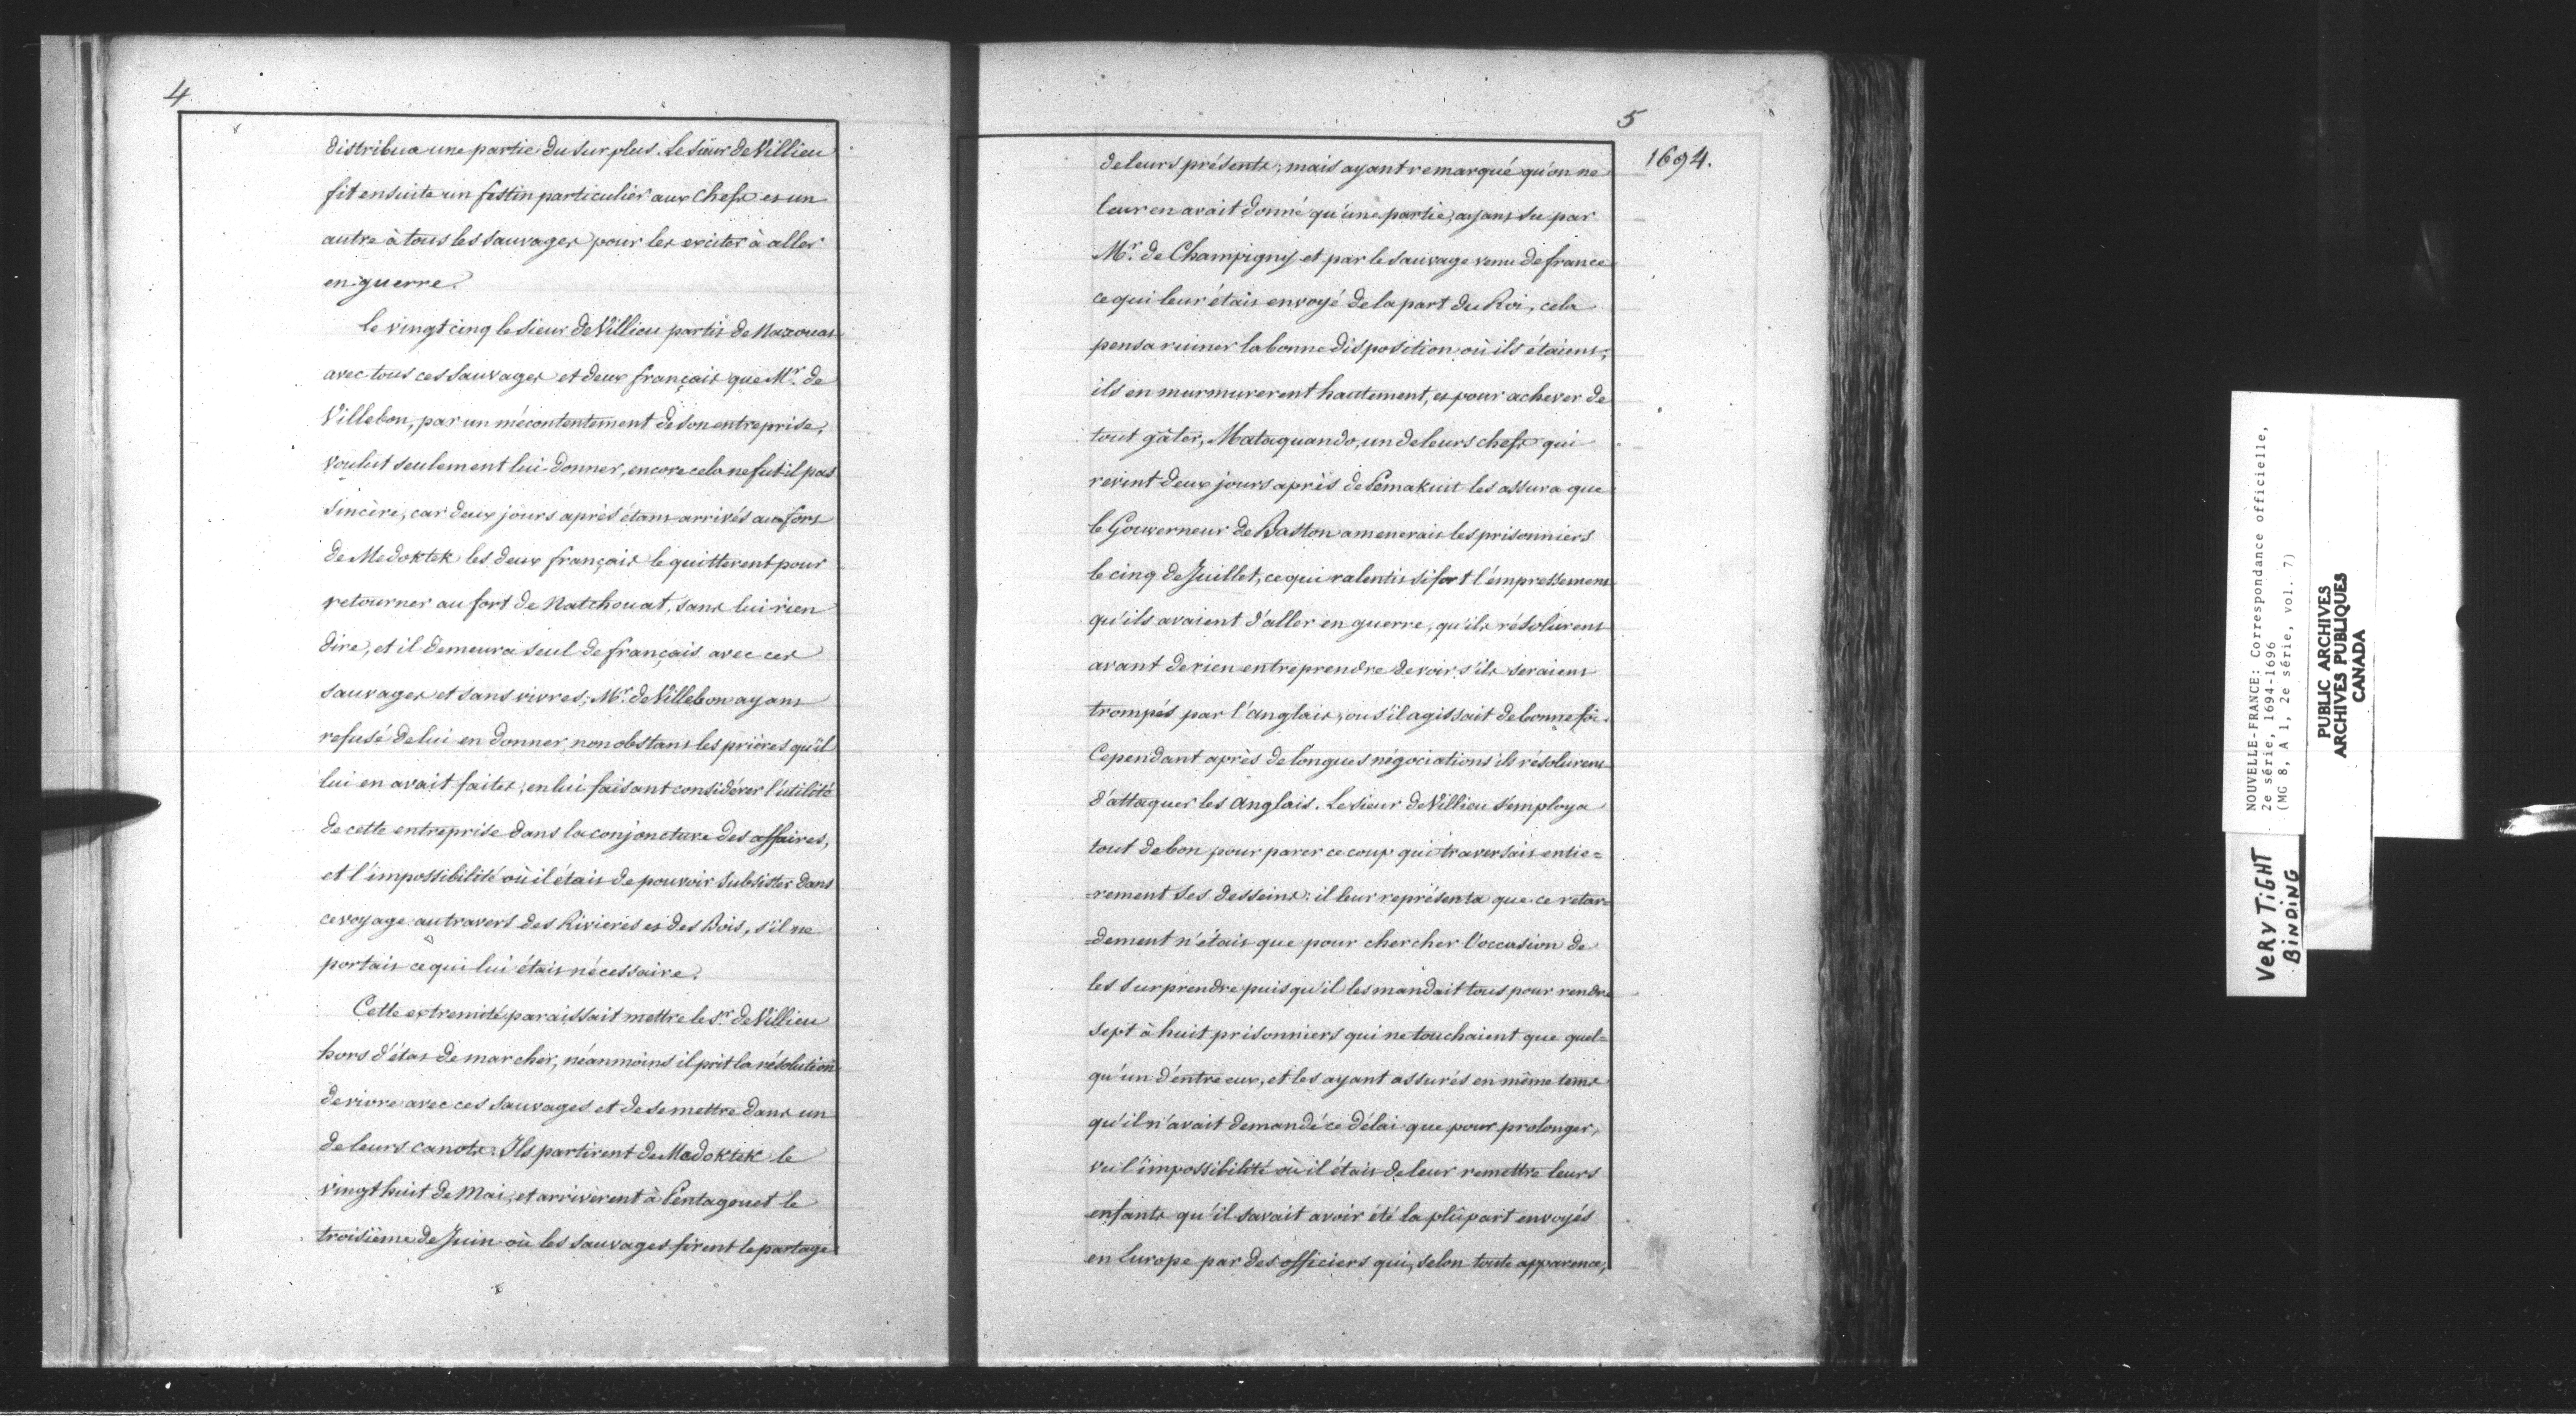 4
distribua une partie du surplus. Le sieur de Villieu
fit ensuite un festin particulier aux chefs et un
autre à tous les sauvages pour les exciter à aller
en guerre.
Le vingt cinq le sieur de Villieu partit de Naxouat
avec tous ces sauvages et deux français que Mr. de
Villebon, par un mécontentement de son entreprise,
voulut seulement lui donner, encore cela ne fut il pas
sincère, car deux jours après étant arrivés au fort
de Medoktek les deux français le quitterent pour
retourner au fort de Natchouat, sans lui rien
dire, et il demeura seul de français avec ces
sauvages et sans vivres; Mr. de Villebon ayant
refusé de lui en donner, nonobstant les prières qu'il
lui en avait faites, en lui faisant considérer l'utilité
de cette entreprise dans la conjoncture des affaires,
et l'impossibilité où il était de pouvoir subsister dans
ce voyage au travers des Rivieres et des Bois, s'il ne
portait ce qui lui était nécessaire.
Cette extremité paraissait mettre le Sr. de Villieu
hors d'état de marcher, néanmoins il prit la résolution
de vivre avec ces sauvages et de se mettre dans un
de leurs canots. Ils partirent de Medoktek le
vingt huit de Mai, et arrivèrent à Pentagouet le
troisième de Juin où les sauvages firent le partage
5
1694.
de leurs présents; mais ayant remarqué qu'on ne
leur en avait donné qu'une partie, ayant su par
Mr. de Champigny et par le sauvage venu de france
ce qui leur était envoyé de la part du Roi, cela
pensa ruiner la bonne disposition où ils étaient;
ils en murmurerent hautement, et pour achever de
tout gâter, Mataquando, un de leurs chefs qui
revint deux jours après de Pemakuit les assura que
le Gouverneur de Baston amenerait les prisonniers
le cinq de Juillet, ce qui ralentit si fort l'empressement
qu'ils avaient d'aller en guerre, qu'ils résolurent
avant de rien entreprendre de voir s'ils seraient
trompés par l'anglais, ou s'il agissait de bonne foi.
Cependant après de longues négociations ils résolurent
d'attaquer les anglais. Le sieur de Villieu s'employa
tout de bon pour parer ce coup qui traversait entie=
=rement ses desseins: il leur représenta que ce retar=
=dement n'était que pour chercher l'occasion de
les surprendre puisqu'il les mandait tous pour rendre
sept à huit prisonniers qui ne touchaient que quel=
qu'un d'entre eux, et les ayant assurés en même tems
qu'il n'avait demandé ce délai que pour prolonger,
vu l'impossibilité où il était de leur remettre leurs
enfants qu'il savait avoir été la plûpart envoyés
en Europe par des officiers qui, selon toute apparence,
NOUVELLE-FRANCE: Correspondance officielle,
2e série, 1694-1696
(MG 8, A 1, 2e série, vol. 7)
PUBLIC ARCHIVES
ARCHIVES PUBLIQUES
CANADA
VERY TIGHT
BINDING